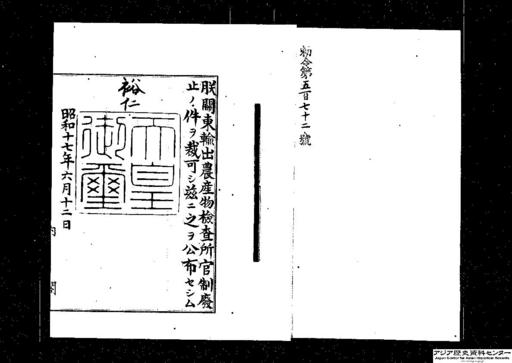 勅令第五百七十二號
朕關東輸出農産物檢査所官制廢
止ノ件ヲ裁可シ茲ニ之ヲ公布セシム
裕仁
天皇
御璽
昭和十七年六月十二日
内閣
アジア歴史資料センター
Japan Center for Asian Historical Records